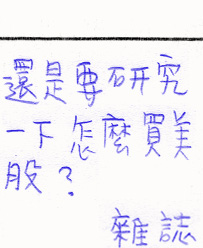 還是要研究
一下怎麼買美
股?
雜誌